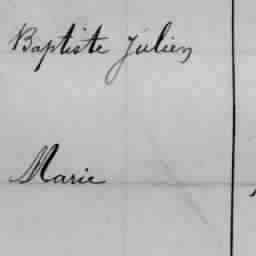 Baptiste Julien
Marie